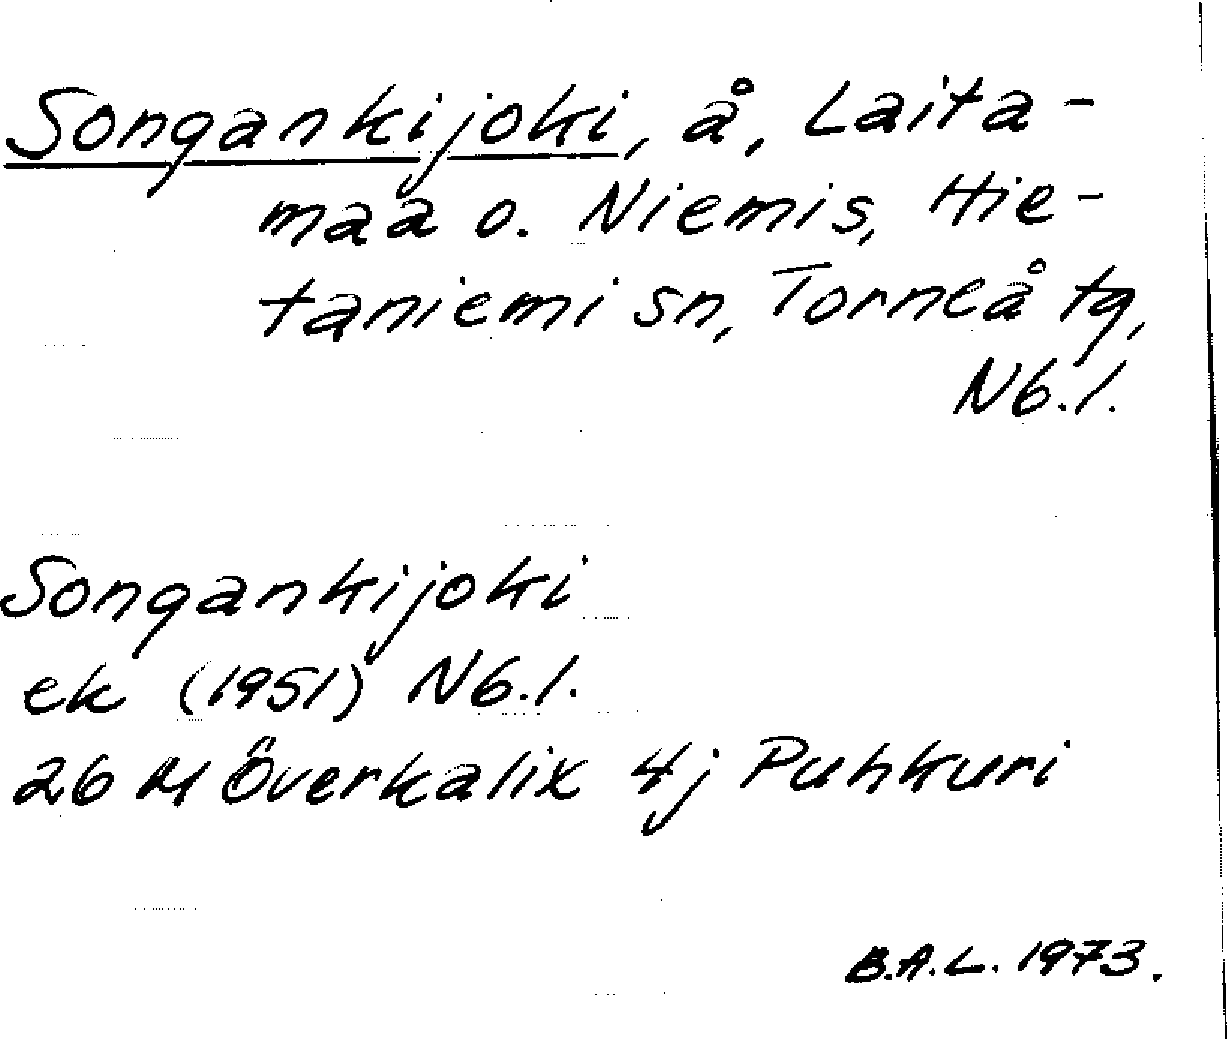 Songankijoki, å, Laita-
maa o. Niemis, Hie-
taniemi sn, Torneå tg,
Nb. l.
Songankijoki
ek (1951) Nb. l.
26 M Överkalix 4j Puhkuri
B.A.L. 1973.